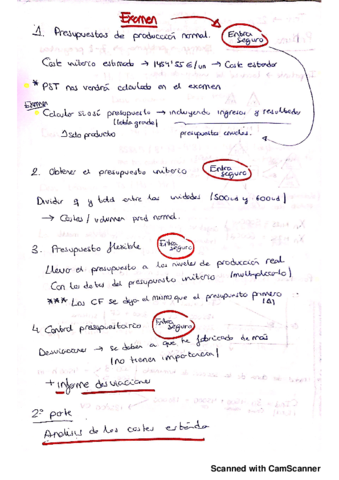 Examen
1. Presupuestos de producción normal. Entra seguro
Coste unitario estimado → €/un → Coste estándar
* PST nos vendrá calculado en el examen
Examen
Calcular sólo presupuesto → incluyendo ingresos y resultados
1 solo producto presupuestos anuales.
2. Obtener el presupuesto unitario Entra seguro
Dividir q y total entre las unidades (500ud y 600ud)
→ Costes / volumen prod normal.
3. Presupuesto flexible Entra seguro
Llevar el presupuesto a los niveles de producción real
Con los datos del presupuesto unitario (multiplicarlo)
*** Los CF se dejan el mismo que el presupuesto primero
4. Control presupuestario Entra seguro
Desviaciones → se deben a que he fabricado de más
(no tienen importancia)
+ informe desviaciones
2ª parte
Análisis de los costes estándar
Scanned with CamScanner